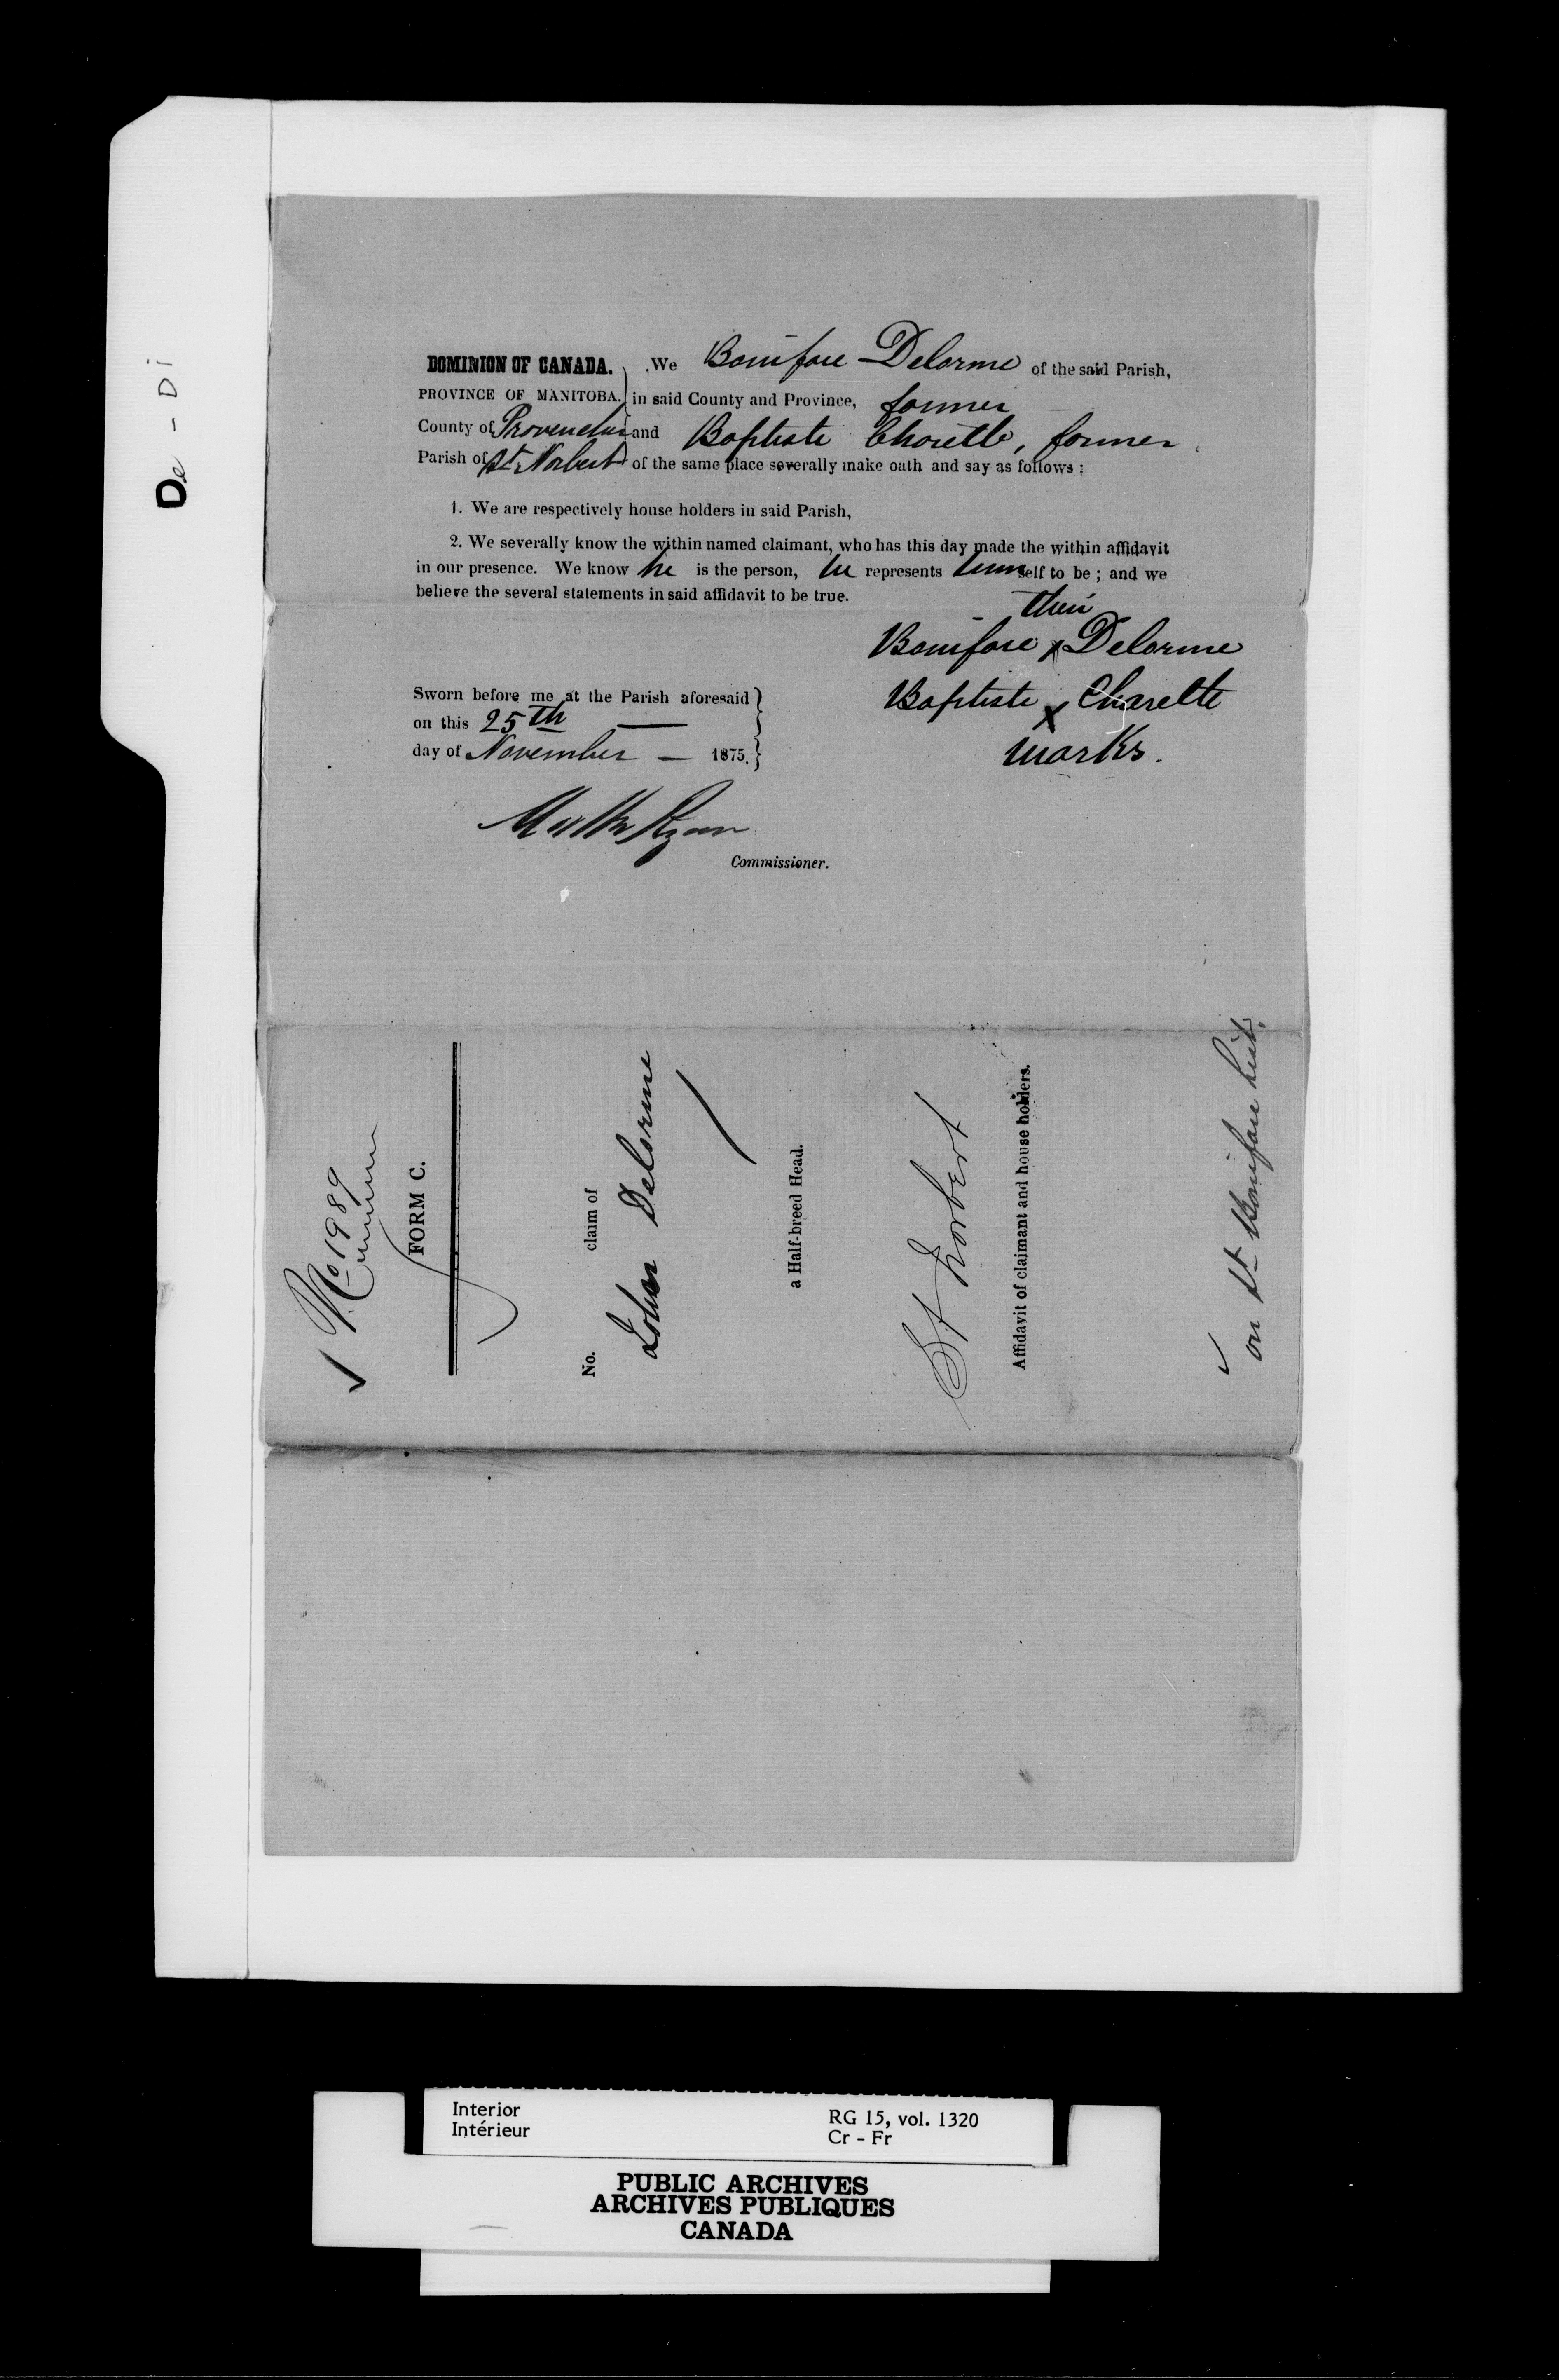 De - Di
DOMINION OF CANADA. We Boniface Delorme of the said Parish,
PROVINCE OF MANITOBA. in said County and Province, farmer
County of Provencher and Baptiste Charette, farmer
Parish of St. Norbert of the same place severally make oath and say as follows:
1. We are respectively house holders in said Parish,
2. We severally know the within named claimant, who has this day made the within affidavit
in our presence. We know he is the person, he represents himself to be; and we
believe the several statements in said affidavit to be true.
their
Boniface x Delorme
Baptiste x Charette
marks.
Sworn before me at the Parish aforesaid
on this 25th
day of November — 1875.
Matthew Ryan
Commissioner.
No 1989
FORM C.
No. claim of
John Delorme
a Half-breed Head.
St Norbert
Affidavit of claimant and house holders.
on St Boniface List.
Interior
Intérieur
RG 15, vol. 1320
Cr - Fr
PUBLIC ARCHIVES
ARCHIVES PUBLIQUES
CANADA